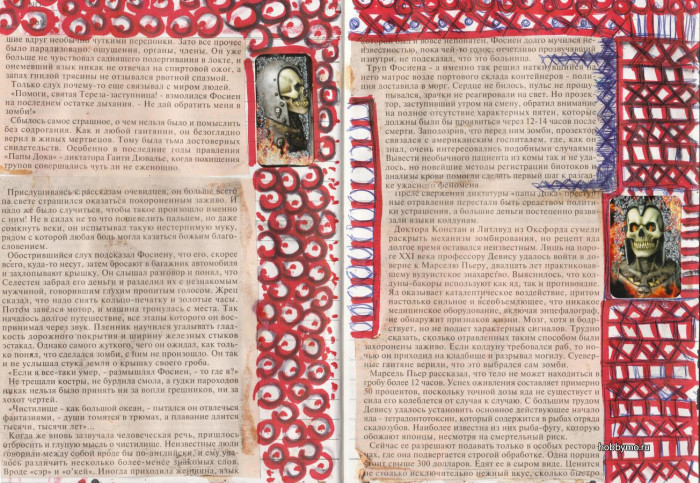 шие вдруг необычно чуткими перепонки. Зато все прочее
было парализовано: ощущения, органы, члены. Он уже
больше не чувствовал саднящего подергивания в локте, и
онемевший язык никак не отвечал на спиртовой ожог, а
запах гнилой трясины не отзывался рвотной спазмой.
Только слух почему-то еще связывал с миром людей.
«Помоги, святая Тереза-заступница! - взмолился Фосиен
на последнем остатке дыхания. - Не дай обратить меня в
зомби!»
Сбылось самое страшное, о чем нельзя было и помыслить
без содрогания. Как и любой гаитянин, он безоглядно
верил в живых мертвецов. Тому была тьма достоверных
свидетельств. Особенно в последние годы правления
«Папы Дока» - диктатора Гаити Дювалье, когда похищения
трупов совершались чуть ли не еженощно.
Прислушиваясь к рассказам очевидцев, он больше всего
на свете страшился оказаться похороненным заживо. И
надо же было случиться, чтобы такое произошло именно
с ним! Не в силах не то что пошевелить пальцем, но даже
сомкнуть веки, он испытывал такую нестерпимую муку,
рядом с которой любая боль могла казаться божьим благо-
словением.
Обострившийся слух подсказал Фосиену, что его, скорее
всего, куда-то несут, затем бросают в багажник автомобиля
и захлопывают крышку. Он слышал разговор и понял, что
Селестен забрал его деньги и разделил их с незнакомым
мужчиной, говорившим глухим пропитым голосом. Жрец
сказал, что надо снять кольцо-печатку и золотые часы.
Потом завёлся мотор, и машина тронулась с места. Так
началось долгое путешествие, все этапы которого он вос-
принимал через звук. Пленник научился угадывать глад-
кость дорожного покрытия и ширину железных стыков
эстакад. Однако самого жуткого, чего он ожидал, как толь-
ко понял, что сделался зомби, с ним не произошло. Он так
и не услышал стука земли о крышку своего гроба.
«Если я все-таки умер, - размышлял Фосиен, - то где я?»
Не трещали костры, не бурдила смола, а гудки пароходов
никак нельзя было принять ни за вопли грешников, ни за
хохот чертей.
«Чистилище - как большой океан, - пытался он отвлечься
фантазиями, - души томятся в трюмах, а плавание длится
тысячи, тысячи лет»...
Когда же вновь зазвучала человеческая речь, пришлось
отбросить и глупую мысль о чистилище. Неизвестные люди
говорили между собой вроде бы по-английски, и ему уда-
лось различить несколько более-менее знакомых слов.
Вроде «сэр» и «о'кей». Иногда приходила женщина, язык
которой был и вовсе непонятен. Фосиен долго мучился не-
известностью, пока чей-то голос, отчетливо прозвучавший
изнутри, не подсказал, что это больница.
Труп Фосиена - а именно так решил наткнувшийся на
него матрос возле портового склада контейнеров - поли-
ция доставила в морг. Сердце не билось, пульс не прощу-
пывался, зрачки не реагировали на свет. Но прозек-
тор, заступивший утром на смену, обратил внимание
на полное отсутствие характерных пятен, которые
должны были бы проявиться через 12-14 часов после
смерти. Заподозрив, что перед ним зомби, прозектор
связался с американским госпиталем, где, как он
знал, очень интересовались подобными случаями.
Вывести необычного пациента из комы так и не уда-
лось, но новейшие методы регистрации биотоков и
анализы крови помогли сделать первый шаг к разгад-
ке ужасного феномена.
После свержения диктатуры «папы Дока» преступ-
ные отравления перестали быть средством полити-
ки устрашения, а большие деньги постепенно развя-
зали языки колдунам.
Доктора Констан и Литлвуд из Оксфорда сумели
раскрыть механизм зомбирования, но рецепт яда
долгое время оставался неизвестным. Лишь на поро-
ге XXI века профессору Девису удалось войти в дове-
рие к Марселю Пьеру, двадцать лет практиковав-
шему вудуистское знахарство. Выяснилось, что кол-
дуны-бакоры используют как яд, так и противоядие.
Яд оказывает каталептическое воздействие, притом
настолько сильное и всеобъемлющее, что никакое
медицинское оборудование, включая энцефалограф,
не обнаружит признаков жизни. Мозг, хотя и бодр-
ствует, но не подает характерных сигналов. Трудно
сказать, сколько отравленных таким способом были
захоронены заживо. Если колдуну требовался раб, то но-
чью он приходил на кладбище и разрывал могилу. Суевер-
ные гаитяне верили, что это выбрался сам зомби.
Марсель Пьер рассказал, что тело не может находиться в
гробу более 12 часов. Успех оживления составляет примерно
50 процентов, поскольку точной дозы яда не существует и
сила его колеблется от случая к случаю. С большим трудом
Девису удалось установить основное действующее начало
яда - тетродотоксин, который содержится в рыбах отряда
скалозубов. Наиболее известна из них рыба-фугу, которую
обожают японцы, несмотря на смертельный риск.
Сейчас ее разрешают подавать только в особых рестора-
нах, где она подвергается строгой обработке. Одна порция
стоит свыше 300 долларов. Едят ее в сыром виде. Ценится
не столько исключительно нежный вкус, сколько быстро
hobbymo.ru